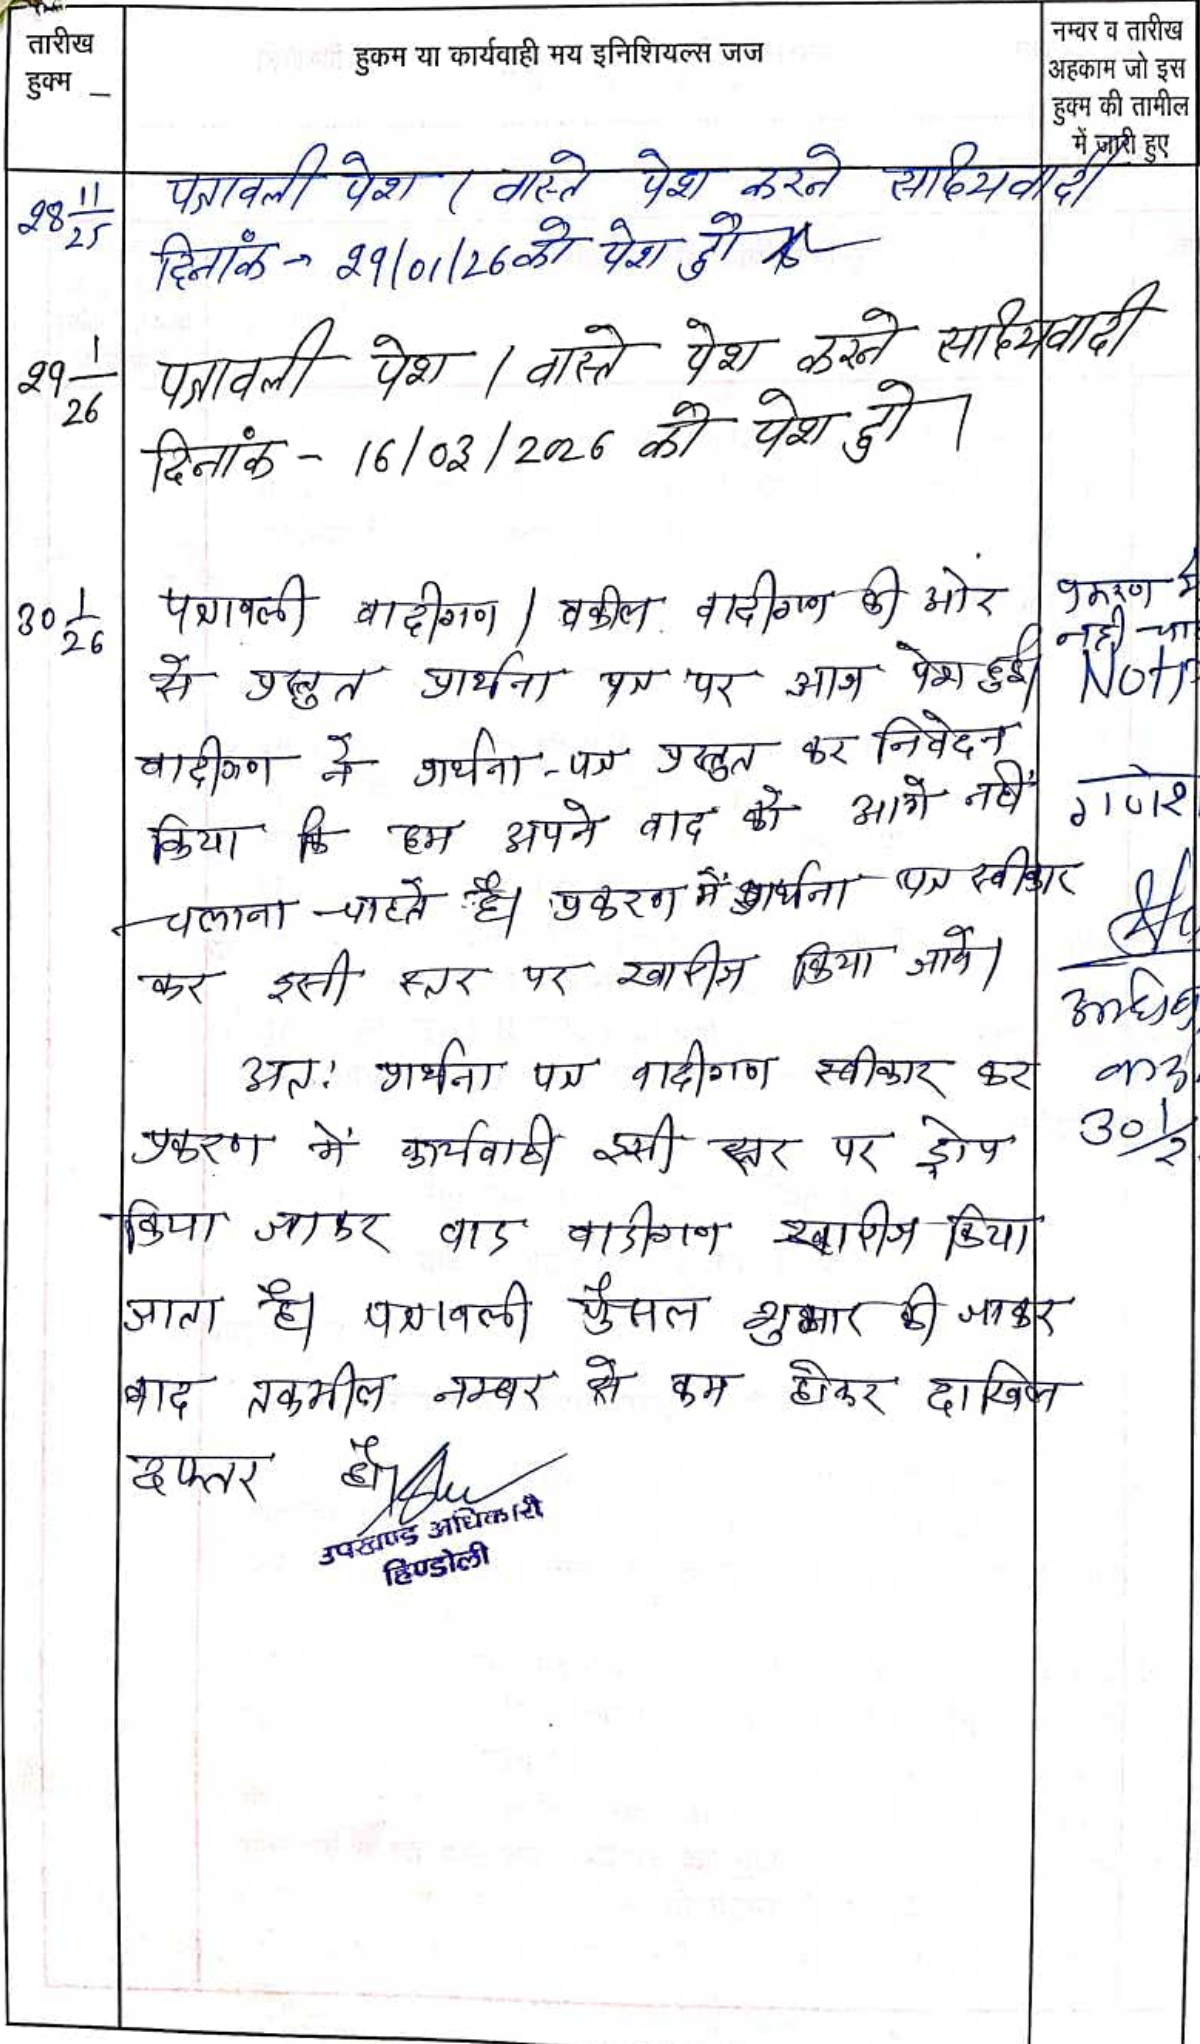 तारीख
हुक्म
हुकम या कार्यवाही मय इनिशियल्स जज
नम्बर व तारीख
अहकाम जो इस
हुक्म की तामील
में जारी हुए
28 11/25
पत्रावली पेश । वास्ते पेश करने साक्ष्यवादी
दिनांक → 29/01/26 को पेश हो
29 1/26
पत्रावली पेश । वास्ते पेश करने साक्ष्यवादी
दिनांक - 16/03/2026 को पेश हो ।
30 1/26
पत्रावली वादीगण / वकील वादीगण की ओर
से प्रस्तुत प्रार्थना पत्र पर आज पेश हुई।
वादीगण ने प्रार्थना-पत्र प्रस्तुत कर निवेदन
किया कि हम अपने वाद को आगे नहीं
चलाना चाहते है। प्रकरण में प्रार्थना पत्र स्वीकार
कर इसी स्तर पर खारीज किया जावे।
अतः प्रार्थना पत्र वादीगण स्वीकार कर
प्रकरण में कार्यवाही इसी स्तर पर ड्रोप
किया जाकर वाद वादीगण खारीज किया
जाता है। पत्रावली फैसल शुमार की जाकर
बाद तकमील नम्बर से कम होकर दाखिल
दफ्तर हो।
उपखण्ड अधिकारी
हिण्डोली
नही
30 1/2